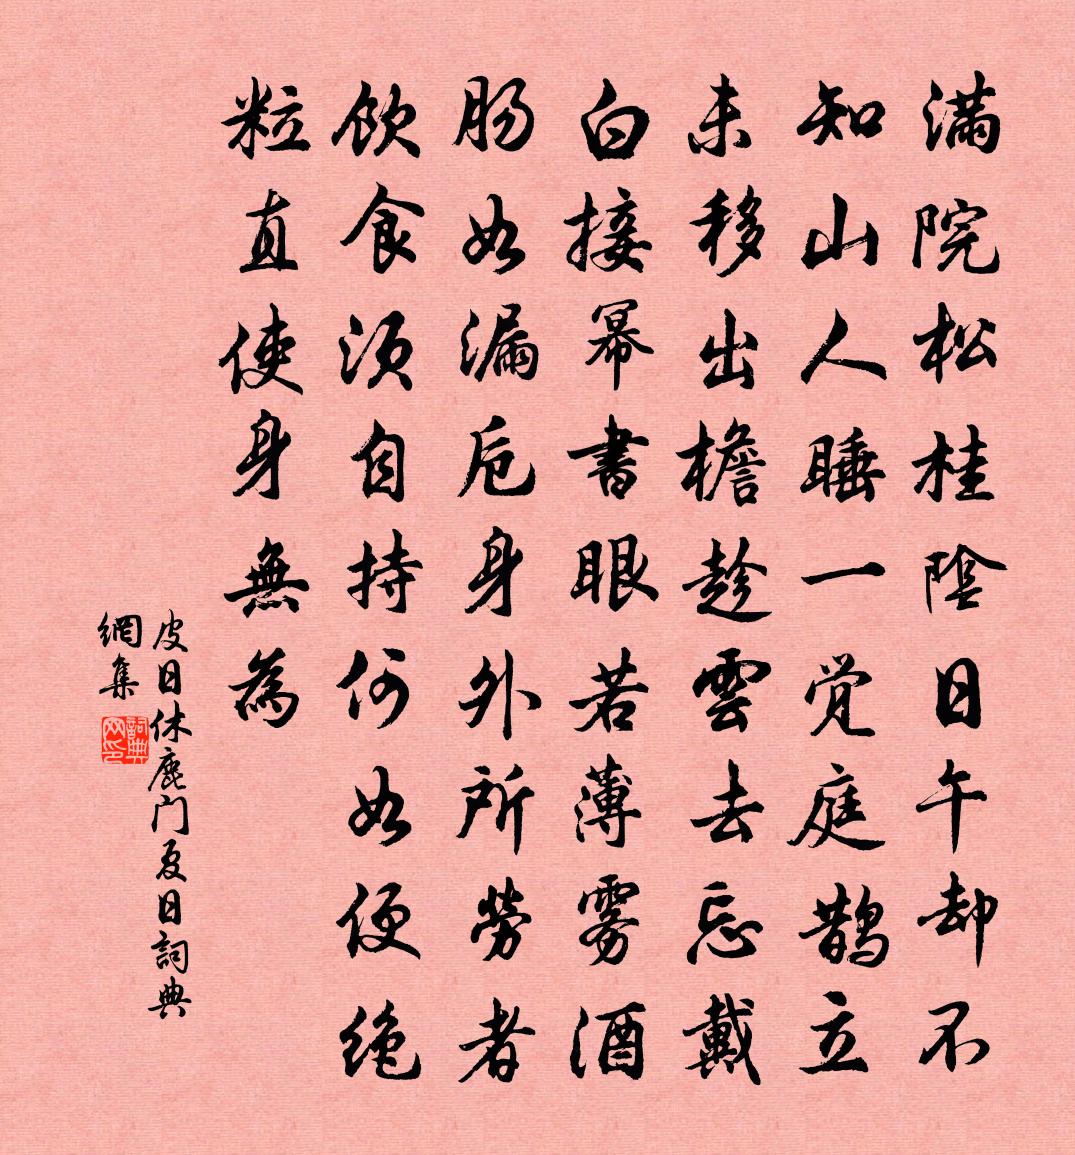 满院松桂陰日午却不
知山人睡一觉庭鹊立
未移出檐趁雲去忘戴
白接幂書眼若薄雾酒
肠如漏卮身外所劳者
飲食须自持何如便绝
粒直使身無為
皮日休鹿门夏日詞典
網集
詞典
网印